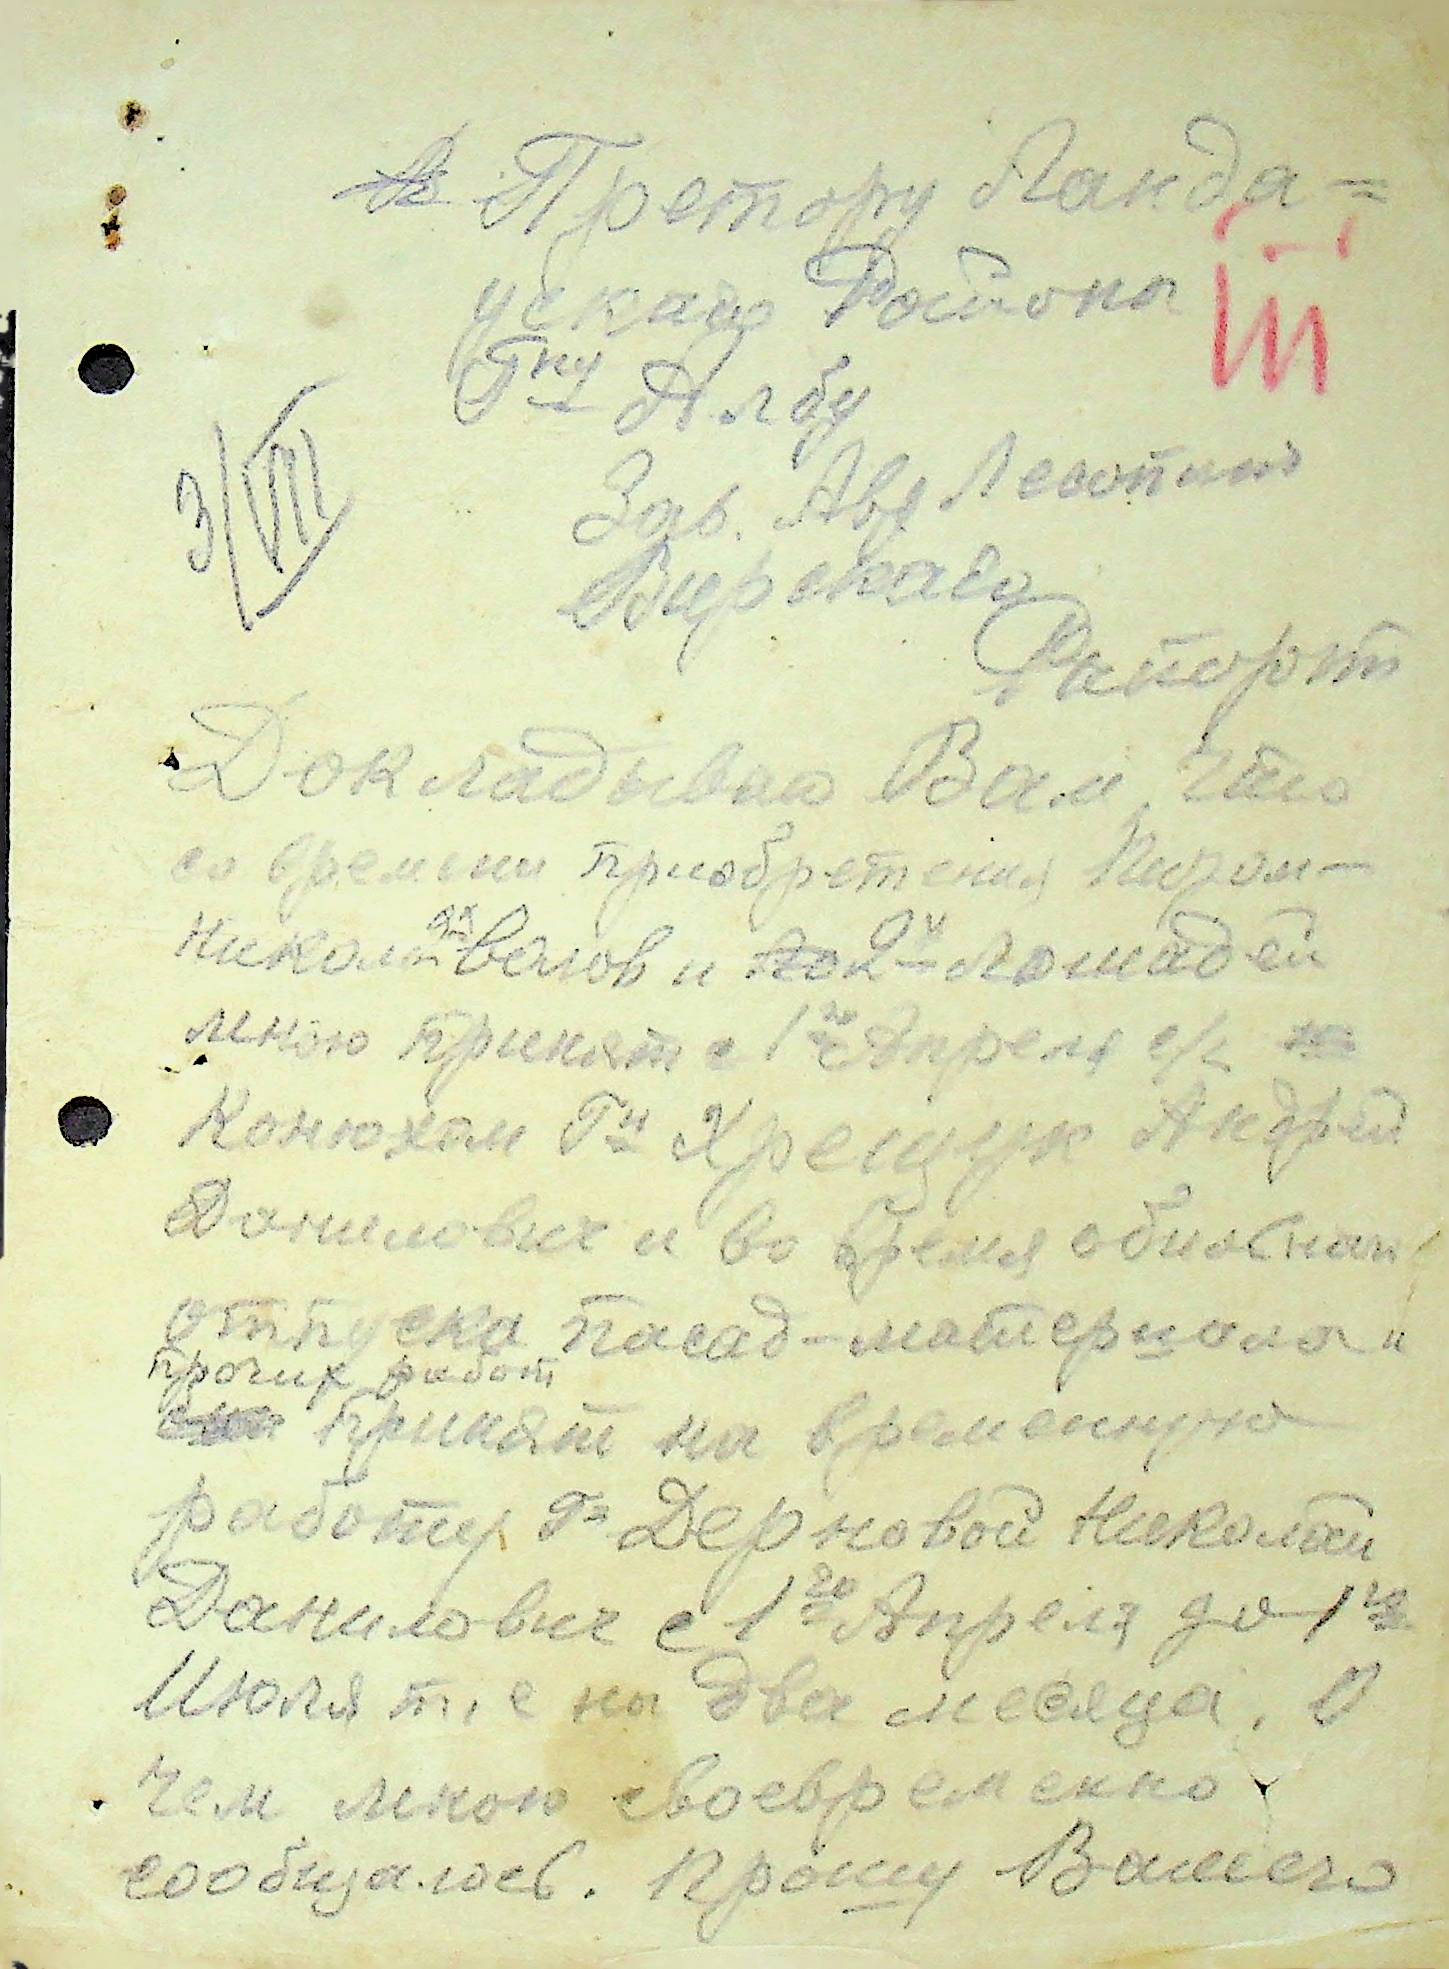 Претору Ланда=
ускаго Района
Гну Албу
III
Зав.
3/VII
Рапорт
Докладываю Вам, что
со времени приобретения Питом-
ником 2х волов и 2х лошадей
мною принят с 1го Апреля с/г
Конюхом Гн Хрещук Андрей
Данилович и во время
отпуска посад-материала и
прочих работ
принят на временную
работу Гн Дерновой Николай
Данилович с 1го Апреля до 1го
Июля т. е на два месяца. О
чем мною своевременно
сообщалось. Прошу Вашего